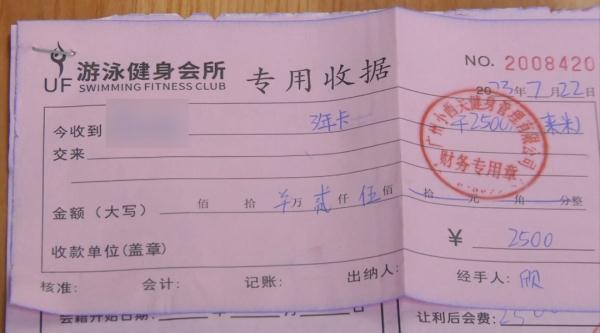 游泳健身会所
UF SWIMMING FITNESS CLUB
专用收据
NO. 2008420
2023年7月22日
今收到 3年卡 2500
交来
广州小西天健身管理有限公司
财务专用章
金额（大写） 佰 拾 万 贰仟 伍佰 拾 元 角 分整
收款单位(盖章) ¥ 2500
核准: 会计: 记账: 出纳人: 经手人:
会籍开始日期: 让利后会费: